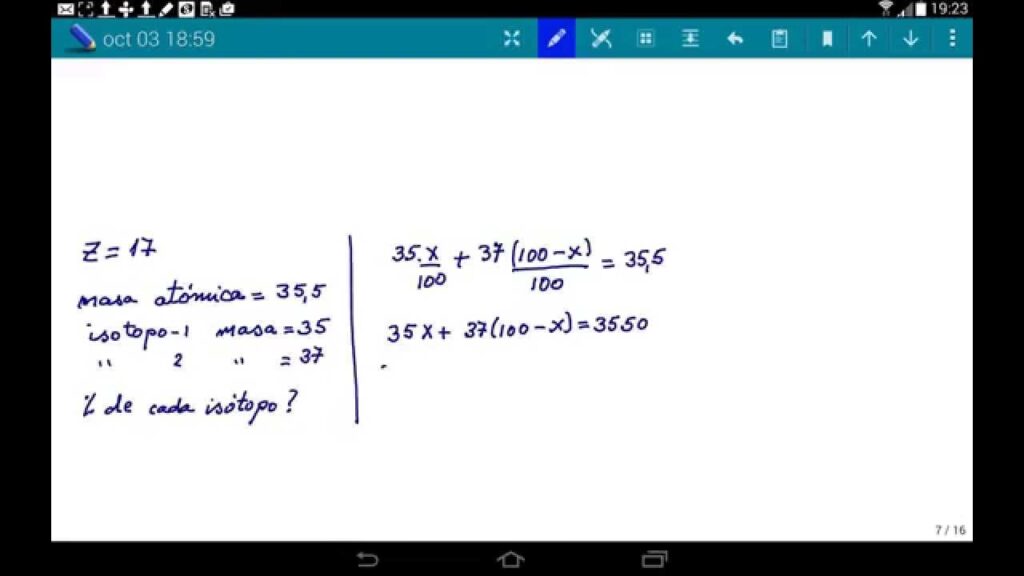 19:23
oct 03 18:59
Z = 17
masa atómica = 35,5
isotopo-1 masa = 35
" 2 " = 37
% de cada isótopo?
35.x/100 + 37 (100-x)/100 = 35,5
35x + 37(100-x) = 3550
7 / 16